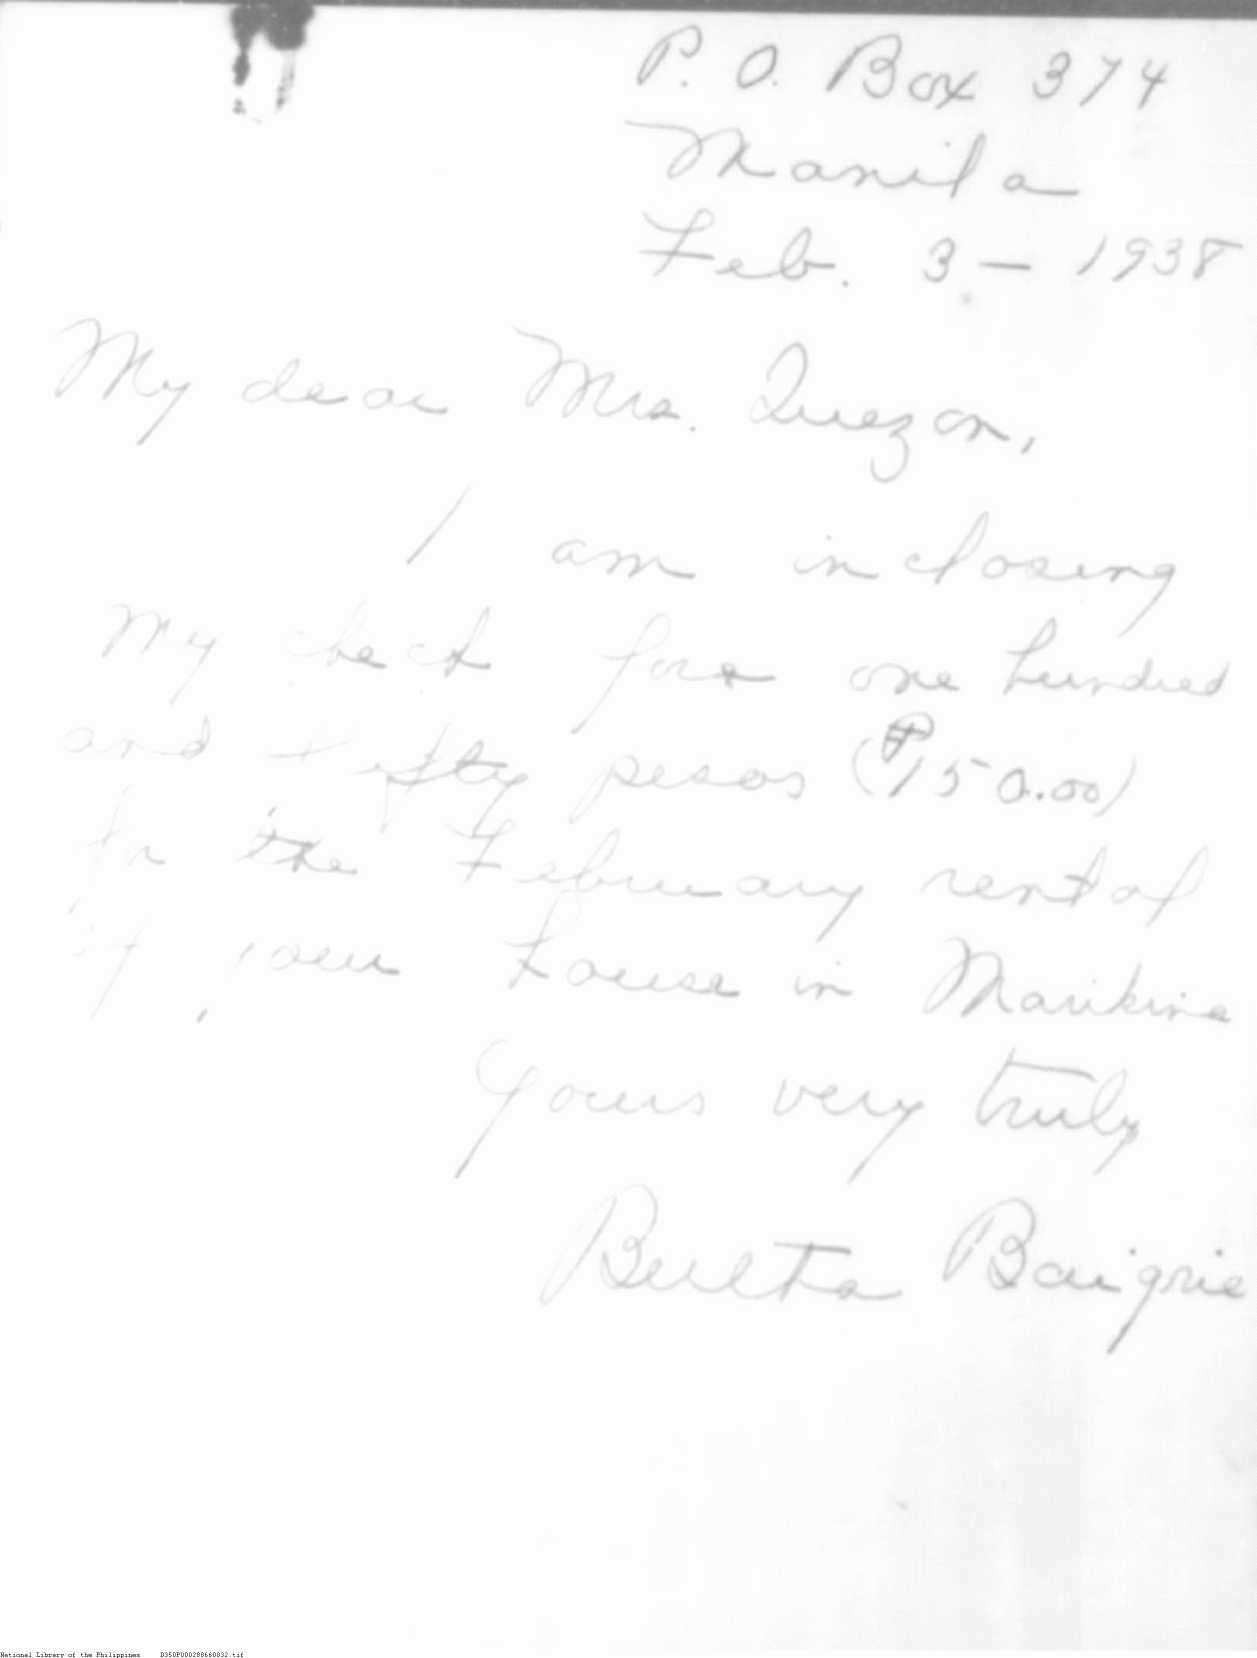 P. O. Box 374
Manila
Feb. 3 - 1938
My dear Mrs. Quezon,
I am inclosing
my check for one hundred
and fifty pesos (₱150.00)
for the February rent of
of your house in Marikina
Yours very truly
Baigrie
National Library of the Philippines D350P000288660832.tif